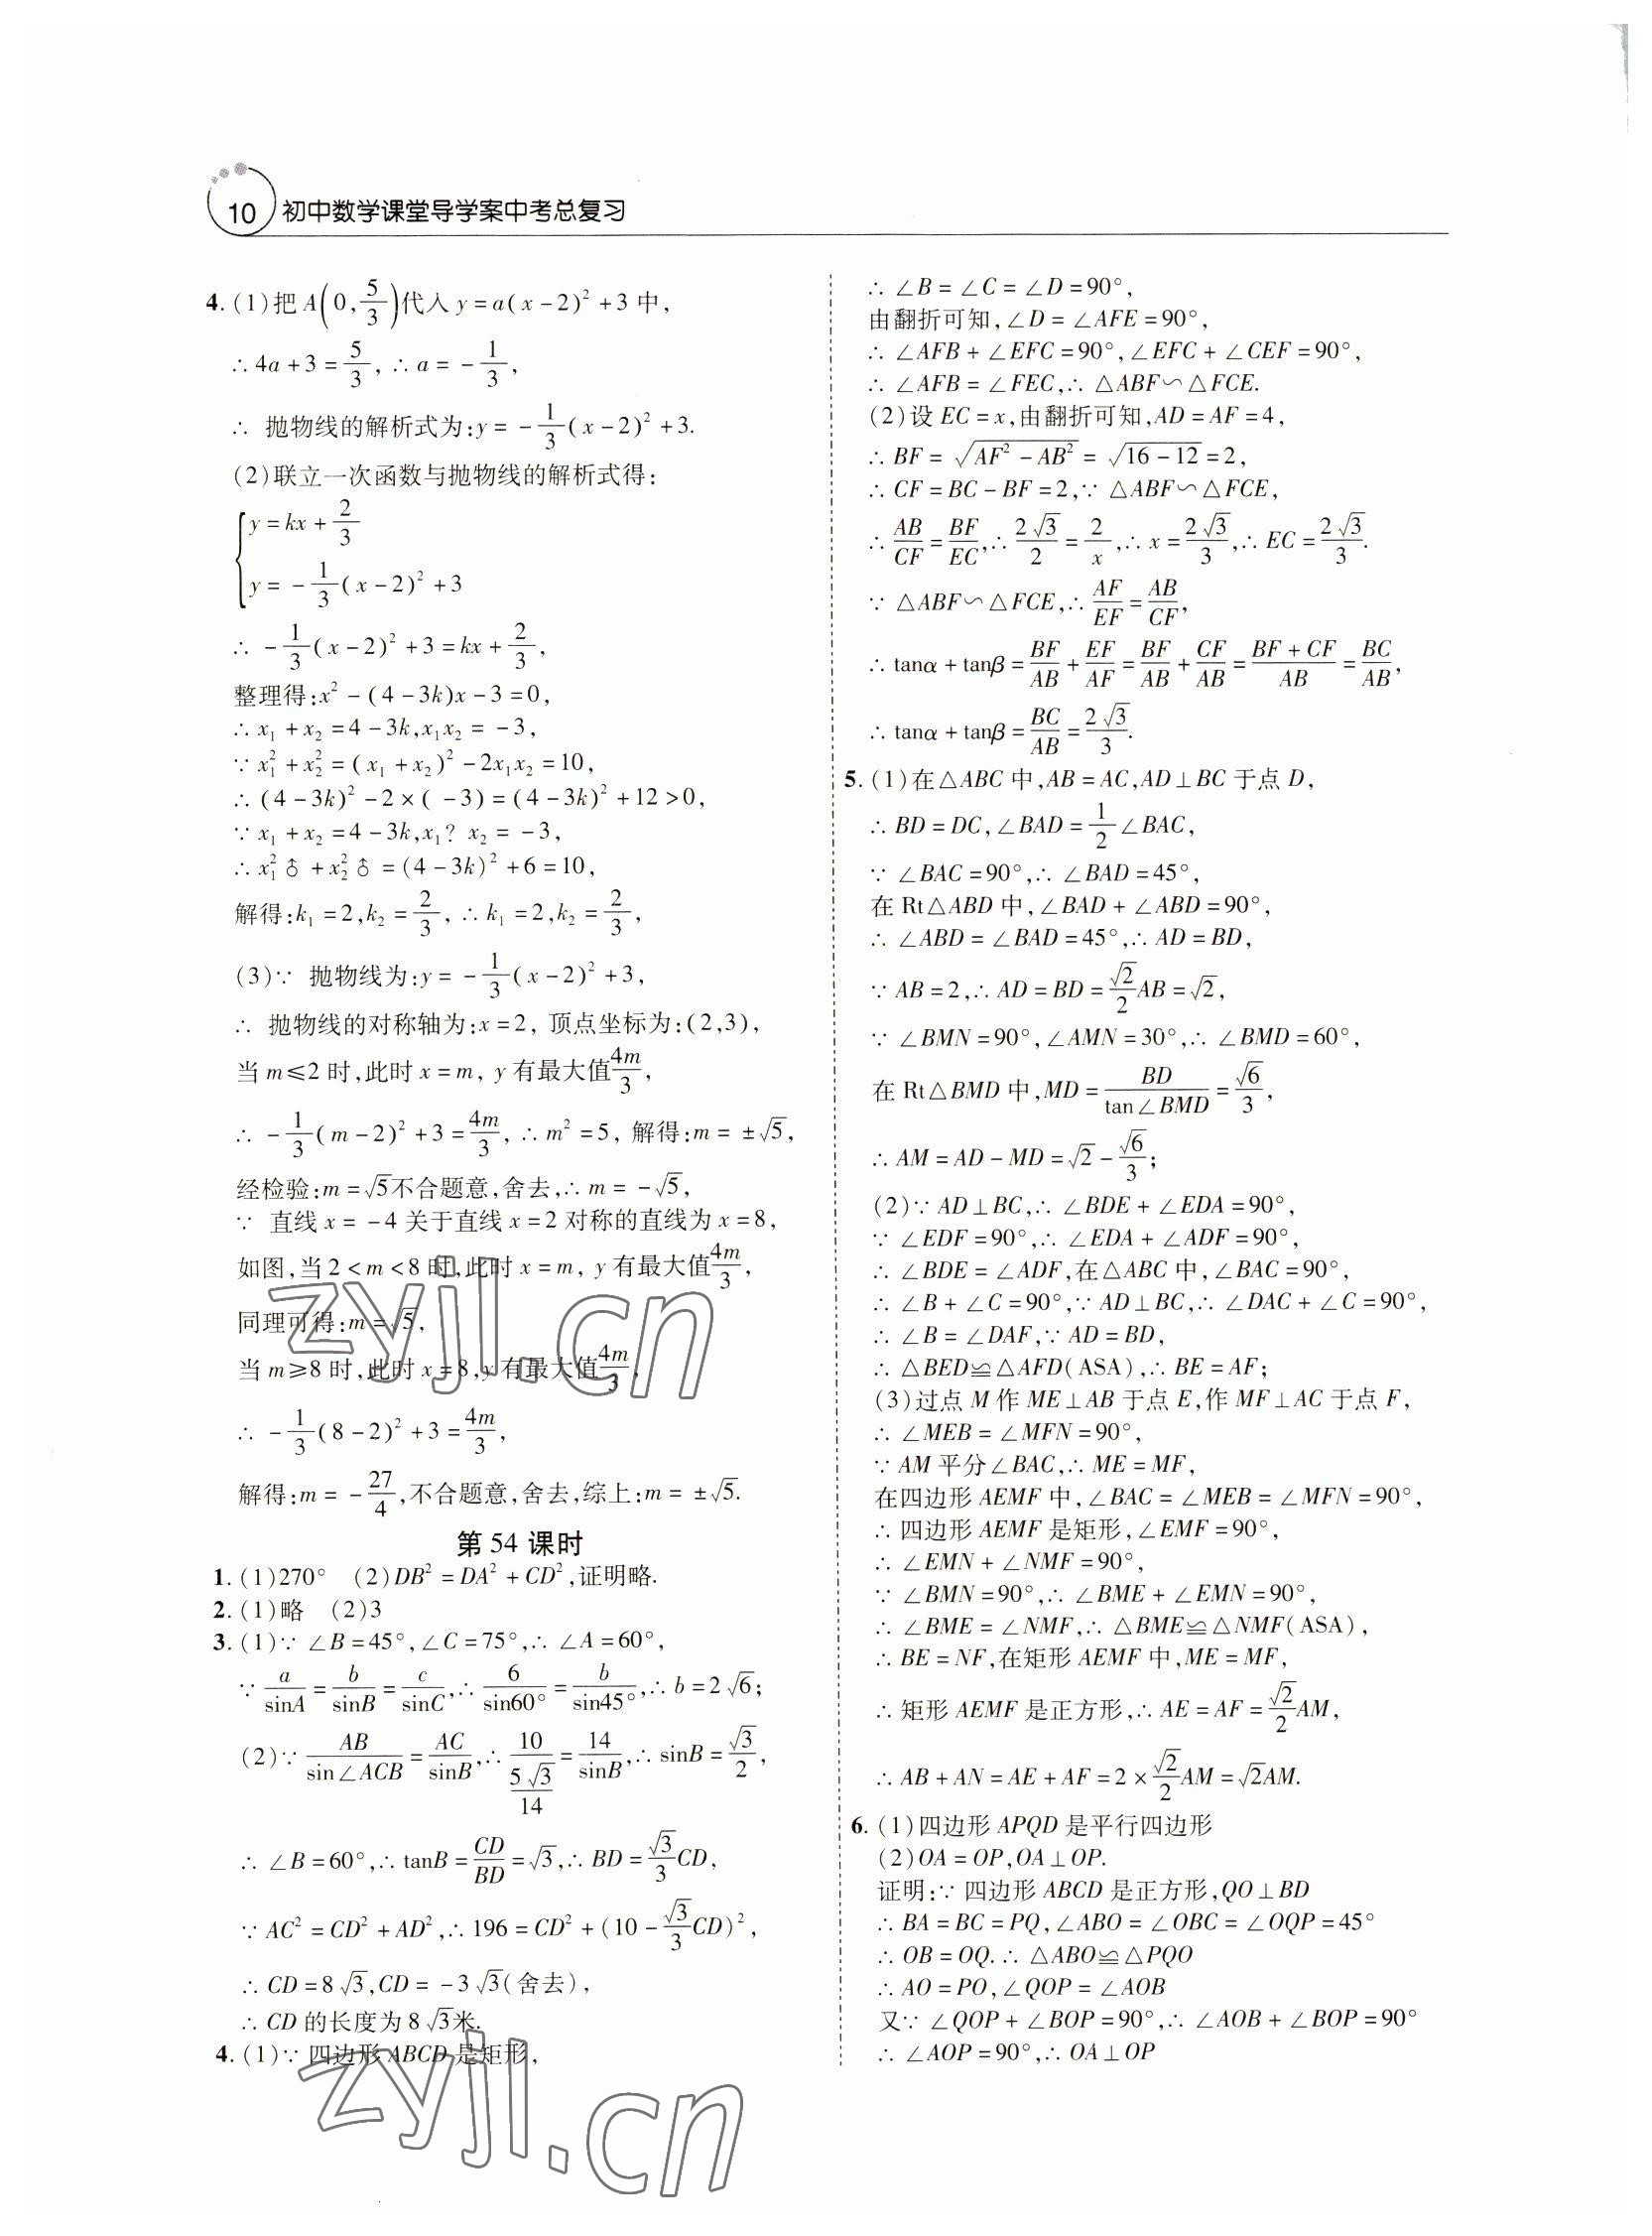 10 初中数学课堂导学案中考总复习
4. (1)把 A(0,5/3)代入 y=a(x-2)²+3 中,
∴ 4a+3=5/3, ∴ a=-1/3,
∴ 抛物线的解析式为:y=-1/3(x-2)²+3.
(2)联立一次函数与抛物线的解析式得:
{y=kx+2/3
y=-1/3(x-2)²+3
∴ -1/3(x-2)²+3=kx+2/3,
整理得:x²-(4-3k)x-3=0,
∴ x₁+x₂=4-3k,x₁x₂=-3,
∵ x₁²+x₂²=(x₁+x₂)²-2x₁x₂=10,
∴ (4-3k)²-2×(-3)=(4-3k)²+12>0,
∵ x₁+x₂=4-3k,x₁? x₂=-3,
∴ x₁²♁+x₂²♁=(4-3k)²+6=10,
解得:k₁=2,k₂=2/3, ∴ k₁=2,k₂=2/3,
(3)∵ 抛物线为:y=-1/3(x-2)²+3,
∴ 抛物线的对称轴为:x=2, 顶点坐标为:(2,3),
当 m≤2 时,此时 x=m, y 有最大值4m/3,
∴ -1/3(m-2)²+3=4m/3, ∴ m²=5, 解得:m=±√5,
经检验:m=√5不合题意,舍去,∴ m=-√5,
∵ 直线 x=-4 关于直线 x=2 对称的直线为 x=8,
如图,当 2<m<8 时,此时 x=m, y 有最大值4m/3,
同理可得:m=√5,
当 m≥8 时,此时 x=8,y 有最大值4m/3,
∴ -1/3(8-2)²+3=4m/3,
解得:m=-27/4,不合题意,舍去,综上:m=±√5.
第 54 课时
1. (1)270° (2)DB²=DA²+CD²,证明略.
2. (1)略 (2)3
3. (1)∵ ∠B=45°,∠C=75°,∴ ∠A=60°,
∵ a/sinA=b/sinB=c/sinC,∴ 6/sin60°=b/sin45°,∴ b=2√6;
(2)∵ AB/sin∠ACB=AC/sinB,∴ 10/(5√3/14)=14/sinB,∴ sinB=√3/2,
∴ ∠B=60°,∴ tanB=CD/BD=√3,∴ BD=√3/3CD,
∵ AC²=CD²+AD²,∴ 196=CD²+(10-√3/3CD)²,
∴ CD=8√3,CD=-3√3(舍去),
∴ CD 的长度为 8√3米.
4. (1)∵ 四边形 ABCD 是矩形,
∴ ∠B=∠C=∠D=90°,
由翻折可知,∠D=∠AFE=90°,
∴ ∠AFB+∠EFC=90°,∠EFC+∠CEF=90°,
∴ ∠AFB=∠FEC,∴ △ABF∽△FCE.
(2)设 EC=x,由翻折可知,AD=AF=4,
∴ BF=√(AF²-AB²)=√(16-12)=2,
∴ CF=BC-BF=2,∵ △ABF∽△FCE,
∴ AB/CF=BF/EC,∴ 2√3/2=2/x,∴ x=2√3/3,∴ EC=2√3/3.
∵ △ABF∽△FCE,∴ AF/EF=AB/CF,
∴ tanα+tanβ=BF/AB+EF/AF=BF/AB+CF/AB=(BF+CF)/AB=BC/AB,
∴ tanα+tanβ=BC/AB=2√3/3.
5. (1)在△ABC 中,AB=AC,AD⊥BC 于点 D,
∴ BD=DC,∠BAD=1/2∠BAC,
∵ ∠BAC=90°,∴ ∠BAD=45°,
在 Rt△ABD 中,∠BAD+∠ABD=90°,
∴ ∠ABD=∠BAD=45°,∴ AD=BD,
∵ AB=2,∴ AD=BD=√2/2AB=√2,
∵ ∠BMN=90°,∠AMN=30°,∴ ∠BMD=60°,
在 Rt△BMD 中,MD=BD/tan∠BMD=√6/3,
∴ AM=AD-MD=√2-√6/3;
(2)∵ AD⊥BC,∴ ∠BDE+∠EDA=90°,
∵ ∠EDF=90°,∴ ∠EDA+∠ADF=90°,
∴ ∠BDE=∠ADF,在△ABC 中,∠BAC=90°,
∴ ∠B+∠C=90°,∵ AD⊥BC,∴ ∠DAC+∠C=90°,
∴ ∠B=∠DAF,∵ AD=BD,
∴ △BED≌△AFD(ASA),∴ BE=AF;
(3)过点 M 作 ME⊥AB 于点 E,作 MF⊥AC 于点 F,
∴ ∠MEB=∠MFN=90°,
∵ AM 平分∠BAC,∴ ME=MF,
在四边形 AEMF 中,∠BAC=∠MEB=∠MFN=90°,
∴ 四边形 AEMF 是矩形,∠EMF=90°,
∴ ∠EMN+∠NMF=90°,
∵ ∠BMN=90°,∴ ∠BME+∠EMN=90°,
∴ ∠BME=∠NMF,∴ △BME≌△NMF(ASA),
∴ BE=NF,在矩形 AEMF 中,ME=MF,
∴ 矩形 AEMF 是正方形,∴ AE=AF=√2/2AM,
∴ AB+AN=AE+AF=2×√2/2AM=√2AM.
6. (1)四边形 APQD 是平行四边形
(2)OA=OP,OA⊥OP.
证明:∵ 四边形 ABCD 是正方形,QO⊥BD
∴ BA=BC=PQ,∠ABO=∠OBC=∠OQP=45°
∴ OB=OQ.∴ △ABO≌△PQO
∴ AO=PO,∠QOP=∠AOB
又∵ ∠QOP+∠BOP=90°,∴ ∠AOB+∠BOP=90°
∴ ∠AOP=90°,∴ OA⊥OP
zyjl.cn
zyjl.cn